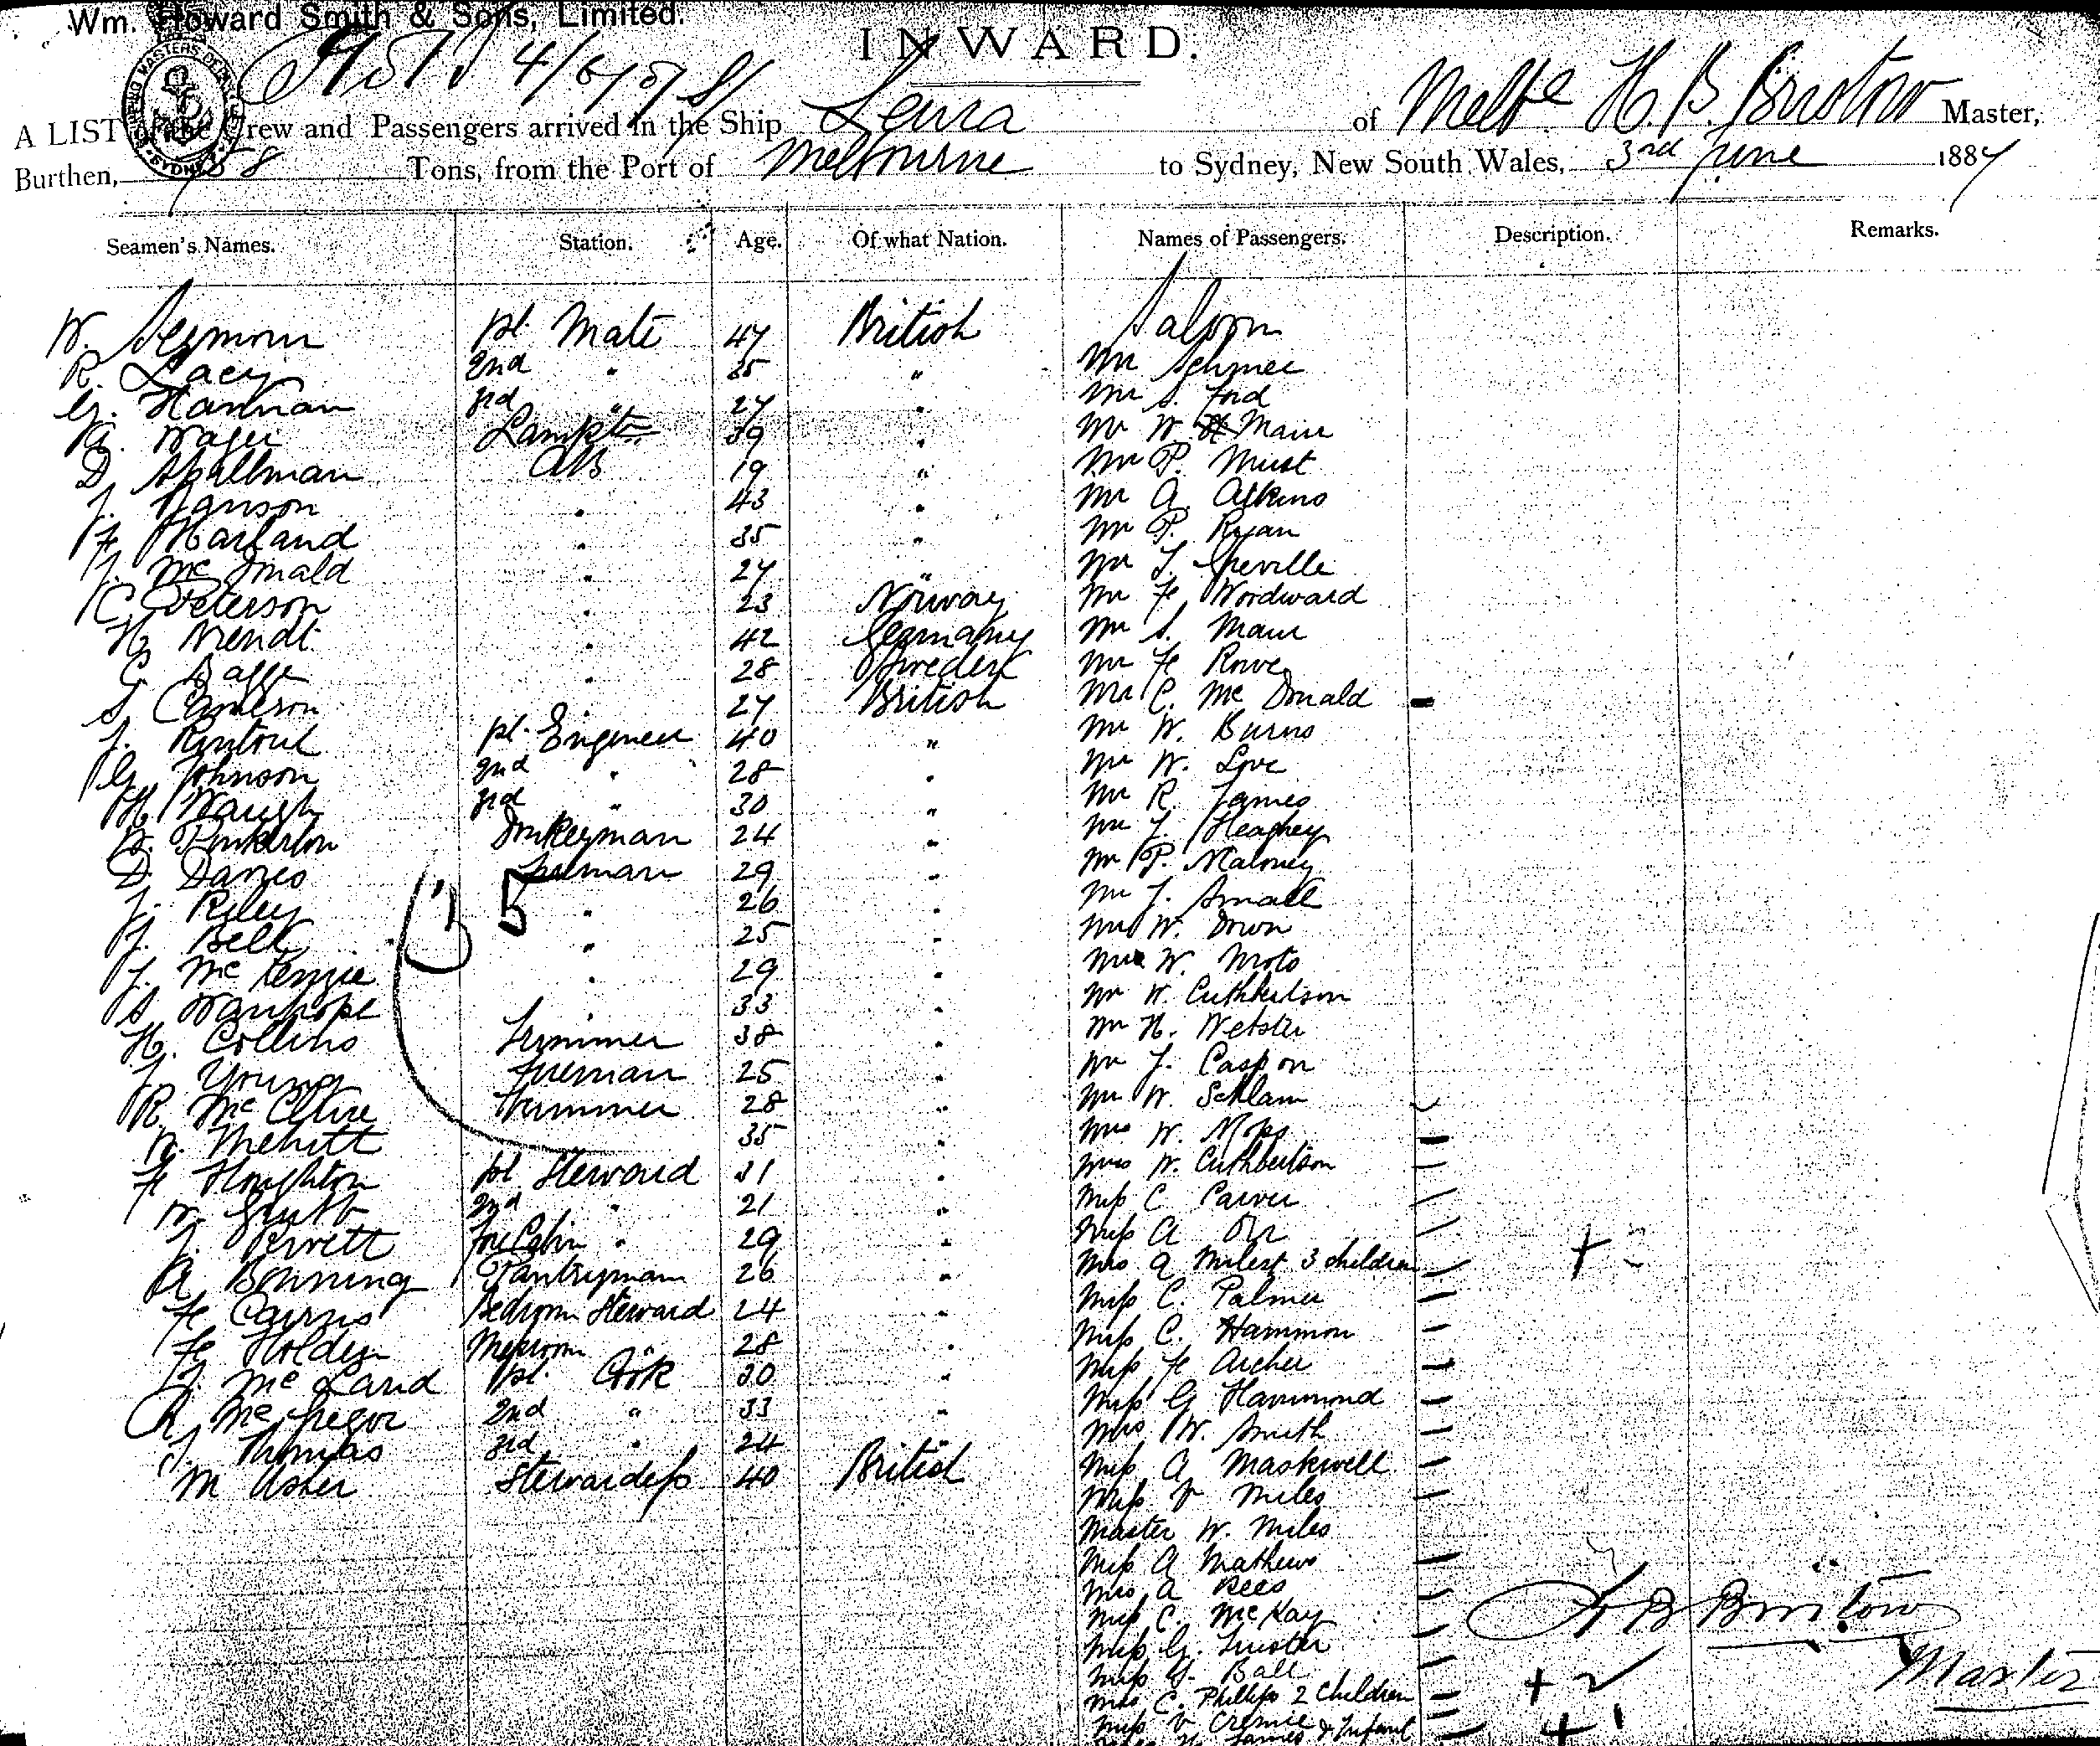 Wm. Howard Smith & Sons, Limited.
INWARD.
A LIST of the Crew and Passengers arrived in the Ship Leura of Melbe H. B. Bristow Master,
Burthen, 758 Tons, from the Port of Melbourne to Sydney, New South Wales, 3rd June 1887
Seamen's Names. Station. Age. Of what Nation. Names of Passengers. Description. Remarks.
W. Seymour pl. Mate 47 British Saloon
R. Lacy 2nd " 25 " Mr Schmee
G. Hannan 3rd " 27 " Mr S. Ford
Lamptr 39 " Mr W. Main
D Spallman AB 19 " Mr P. Must
J. Hanson " 43 " Mr A. Atkins
F Harland " 35 " Mr P. Ryan
J. McDonald " 27 " Mr J. Greville
C. Peterson " 23 Norway Mr F Woodward
H Wendt " 42 Germany Mr S. Main
G " 28 Sweden Mr F Rowe
S Cameron " 27 British Mr C. McDonald
J. Rintoul pl. Engineer 40 " Mr W. Burns
G Johnson 2nd " 28 " Mr W. Love
H Waugh 3rd " 30 " Mr R. James
Pinkerton Donkeyman 24 " Mr J. Heaphey
D. Davies Fireman 29 " Mr P. Maloney
J. Riley " 26 " Mr J. Small
J. Bell " 25 " Mr W. Down
J. McKenzie " 29 " W. Moto
S Wanhope 33 " Mr W. Cuthbertson
H. Collins Trimmer 38 " Mr H. Webster
J Young Fireman 25 " Mr J. Caspon
R. McClure Trimmer 28 " Mr W. Schlam
W. Mehitt 35 " Mrs W. Moss
F Houghton pl Steward 31 " Mrs W. Cuthbertson
W. 2nd " 21 " Miss C Carver
J. Perrett Fore Cabin " 29 " Miss A Orr
A Bonning Pantryman 26 " Mrs A Miles & 3 children
F Cairns Bedroom Steward 24 " Miss C. Palmer
F Holden Messroom " 28 " Miss C. Hammon
J. McLard pl. Cook 30 " Miss F Archer
A McGregor 2nd " 33 " Miss G Hammond
J. Thomas 3rd " 24 " Mrs W. Smith
M Usher Stewardess 40 British Miss A Maskwell
Miss V Miles
Master W. Miles
Miss A Mathews
Mrs A Rees
Miss C. McKay
Miss G.
Miss G. Ball
Mrs C. Phillips 2 Children
V & Infant
James
35
H B Bristow
Master
+ 3
+ 2
+ 1